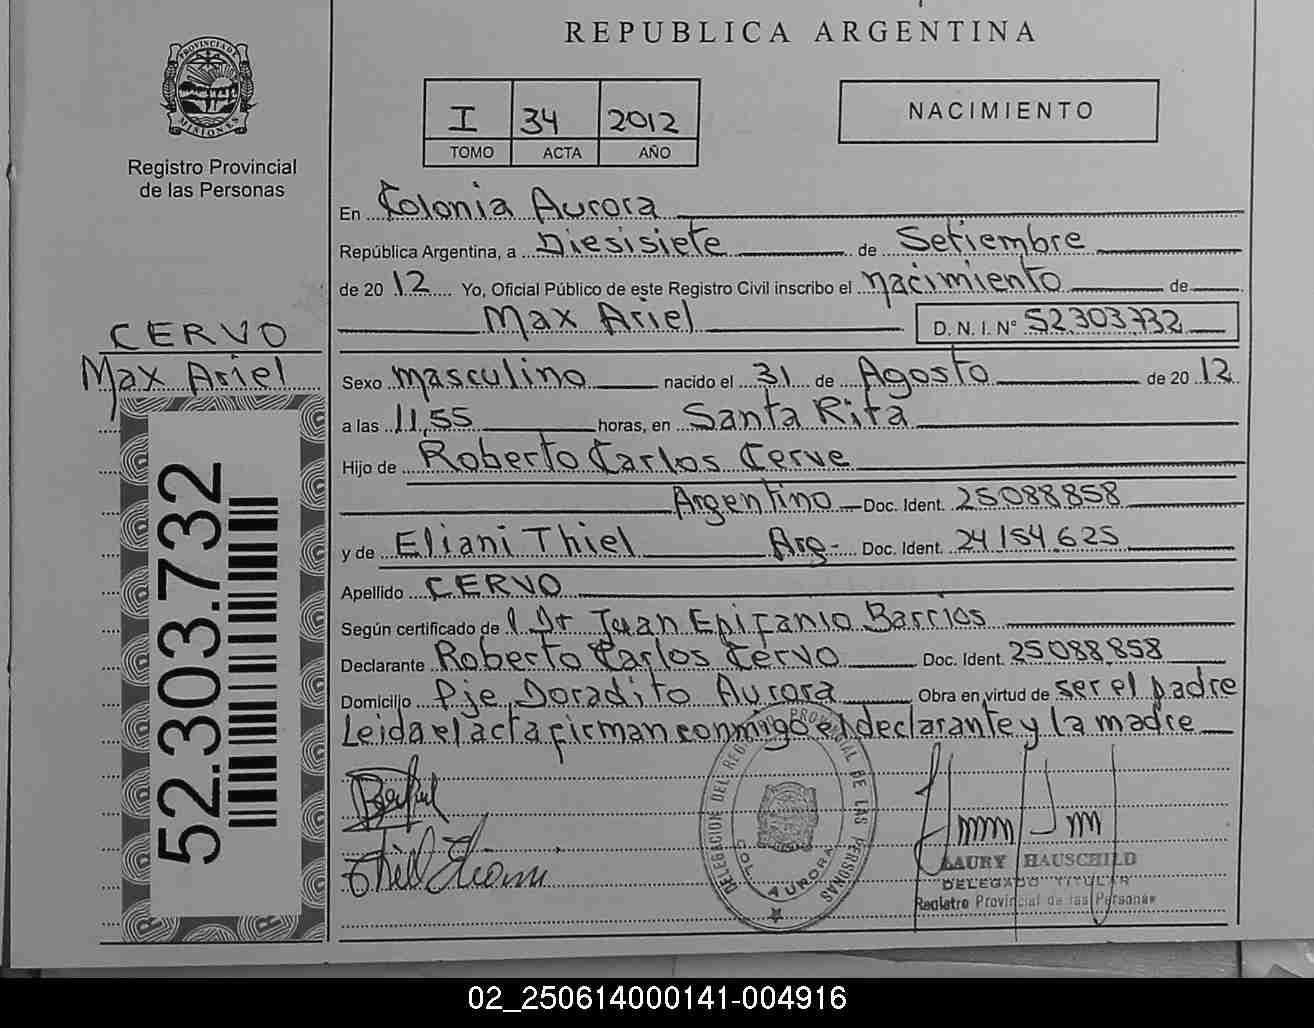 REPUBLICA ARGENTINA
PROVINCIA DE MISIONES
Registro Provincial
de las Personas
I 34 2012
TOMO ACTA AÑO
NACIMIENTO
En Colonia Aurora
República Argentina, a Diesisiete de Setiembre
de 2012 Yo, Oficial Público de este Registro Civil inscribo el nacimiento de
Max Ariel D. N. I. Nº 52303732
CERVO
Max Ariel
52.303.732
Sexo masculino nacido el 31 de Agosto de 2012
a las 11,55 horas, en Santa Rita
Hijo de Roberto Carlos Cerve
Argentino Doc. Ident. 25088858
y de Eliani Thiel Arg- Doc. Ident. 24154625
Apellido CERVO
Según certificado de Juan Epifanio Barrios
Declarante Roberto Carlos Cervo Doc. Ident. 25088858
Domicilio Pje Doradito Aurora Obra en virtud de ser el padre
Leida el acta firman conmigo el declarante y la madre
Thiel Eliani
DELEGACION DEL REGISTRO PROVINCIAL DE LAS PERSONAS
COL. AURORA
LAURY HAUSCHILD
DELEGADO TITULAR
Registro Provincial de las Personas
02_250614000141-004916